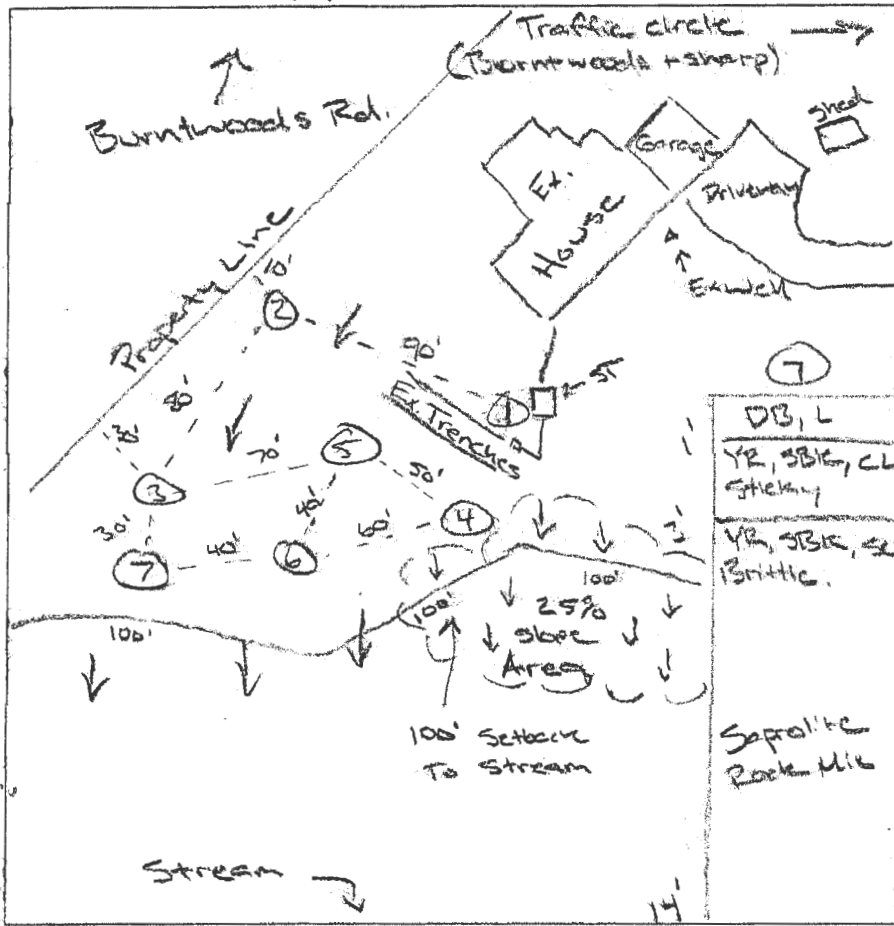 Traffic circle
(Burntwoods + sharp)
Burntwoods Rd.
shed
Garage
Ex.
House
Driveway
Ex well
Property Line
10'
2
90'
1
ST
Ex. Trenches
80'
130'
3
70'
5
50'
4
30'
40'
60'
7
40'
6
100'
100'
100'
25%
slope
Area
100' Setback
To Stream
Stream
7
DB, L
1'
YR, SBK, CL
Sticky
3'
YR, SBK,
Brittle.
Saprolite
Rock Mix
14'